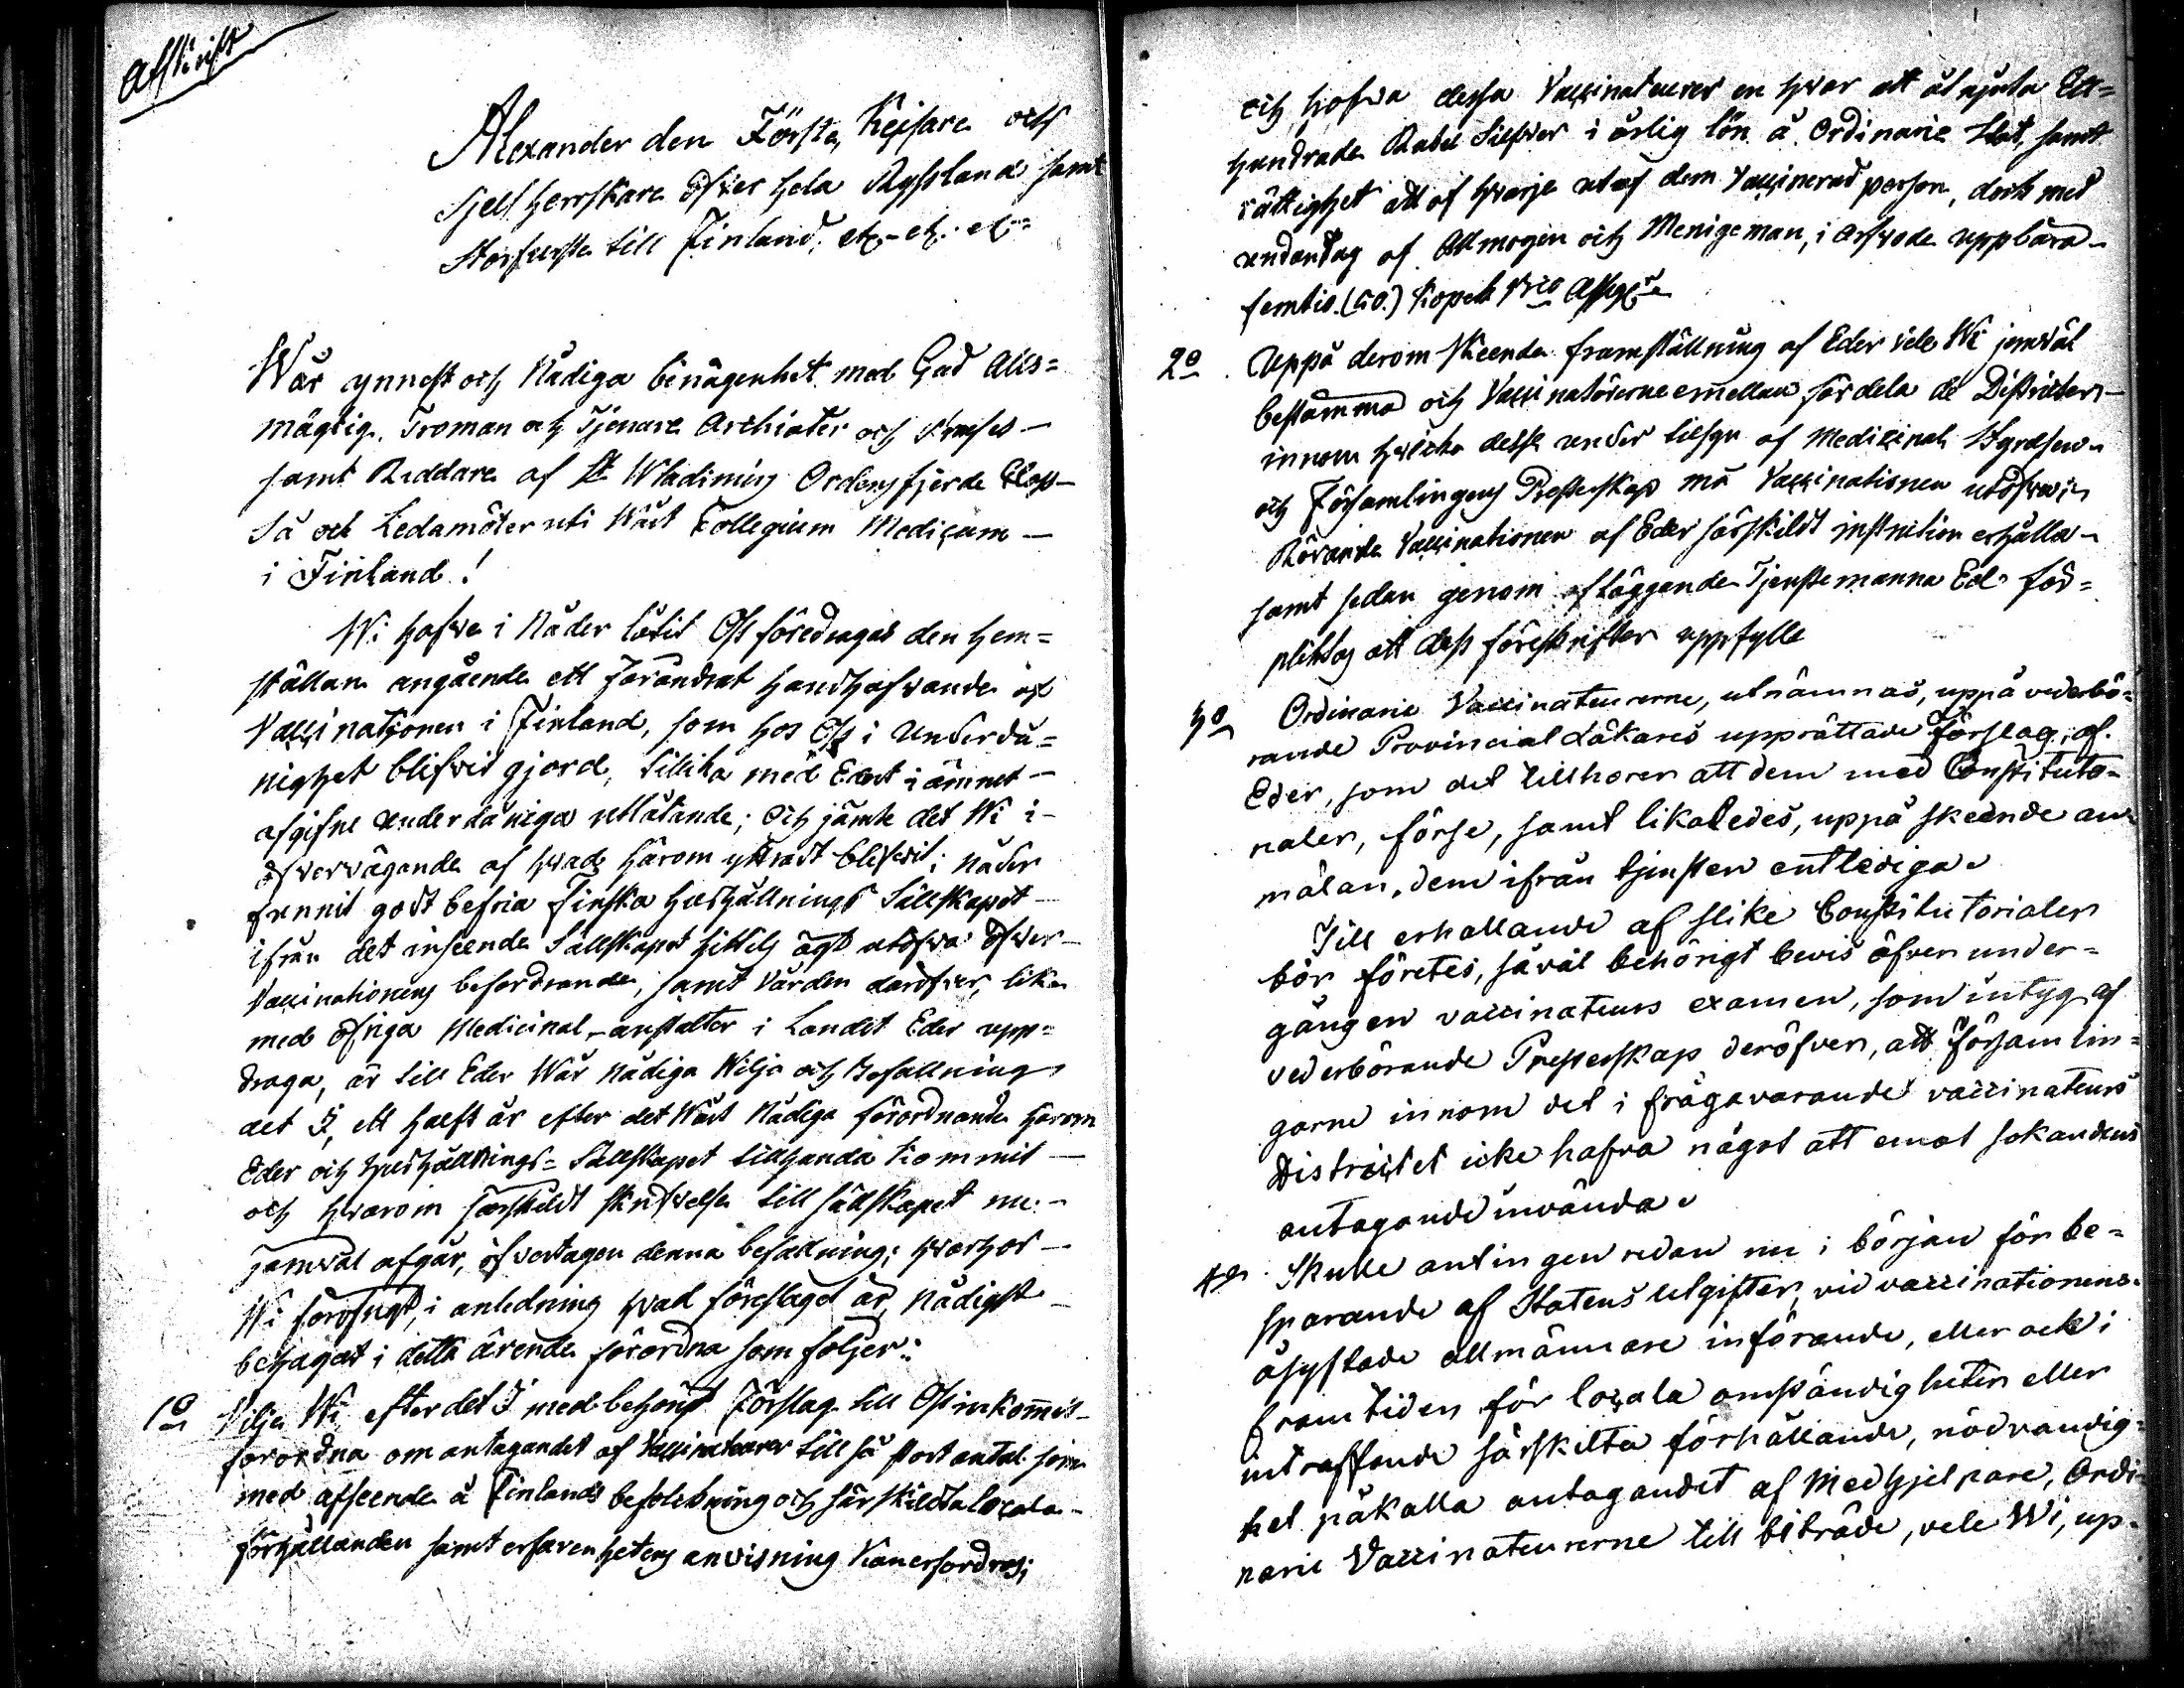 Afskrift
Alexander den Förste, Kejsare och
Sjelfherrskare öfver hela Ryssland samt
Storfurste till Finland, etc - etc. etc=
Wår ynnest och Nådiga benägenhet med Gud Alls=
mägtig, Troman och Tjenare Archiater och Præses -
samt Riddare af St Wladimirs Ordens fjerde Class -
Så och Ledamöter uti Wårt Collegium Medicum -
i Finland!
Wi hafve i Nåder låtit Oss föredragas den hem=
ställan angående ett förändrat handhafvande af
Vaccinationen i Finland, som hos Oss i Underdå=
nighet blifvit gjord, tillika med Edert i ämnet -
afgifne underdåniga utlåtande; Och jämte det Wi i -
öfvervägande af hvad härom yttradt blifvit, i Nåder
funnit godt befria Finska Hushållnings Sällskapet -
ifrån det inseende Sällskapet hittils ägt utöfva öfver -
Vaccinationens befordrande, samt vården deröfver, lika
med öfriga Medicinal-anstalter i Landet Eder upp=
draga, är till Eder Wår Nådiga Wilja och Befallning
det I, ett halft år efter det Wårt Nådiga förordnande härom
Eder och Hushållnings=Sällskapet tillhanda kommit -
och hvarom särskildt skrifvelse till Sällskapet nu -
jemväl afgår, öfvertagen denna befattning; hvarhos -
Wi i anledning hvad föreslaget är, Nådigst -
behagat i detta ärende förordna som följer:
1o Vilja Wi efter det I med behörigt Förslag till Oss inkommit -
förordna om antagandet af Vaccinateurer till så stort antal som
med afseende å Finlands befolkning och särskildta locala -
förhållanden samt erfarenhetens anvisning kan erfordras;
och hafva dessa Vaccinateurer en hvar att åtnjuta Ett=
hundrade Rubel Silfver i årlig lön å Ordinarie Stat, samt
rättighet att af hvarje utaf dem Vaccinerad person, dock med
undantag af Allmogen och Menigeman, i arfvode uppbära -
femtio (50.) Kopek
2o Uppå derom skeende framställning af Eder vele Wi jemväl
bestämma och Vaccinatörerne emellan fördela de Districter -
innom hvilka desse under tillsyn af Medicinal Styrelsen
och Församlingens Presterskap må Vaccinationen utöfva,
Rörande Vaccinationen af Eder särskildt instruction erhålla -
samt sedan genom afläggande Tjenstemanna Ed för=
pligtas att dess föreskrifter uppfylla
3o Ordinarie Vaccinateurerne, utnämnas, uppå vederbö=
rande Provincial Läkares upprättade Förslag, af
Eder, som det tillhörer att dem med Constituto=
rialer, förse, samt likaledes, uppå skeende an=
mälan, dem ifrån tjensten entlediga.
Till erhållande af slike Constitutorialer
bör företes, såväl behörigt bevis öfver under=
gången vaccinateurs examen, som intyg af
vederbörande Presterskap deröfver, att Församlin=
garne innom det i frågavarande vaccinateurs
Districtet icke hafva något att emot sökandens
antagande invända.
4o Skulle antingen redan nu i början för be=
sparande af Statens utgifter, vid vaccinationens
åsyftade allmännare införande, eller ock i
framtiden för locala omständigheter eller
inträffande särskilta förhållande, nödvändig=
het påkalla antagandet af Medhjelpare, Ordi=
narie Vaccinateurerne till biträde, vele Wi, up=